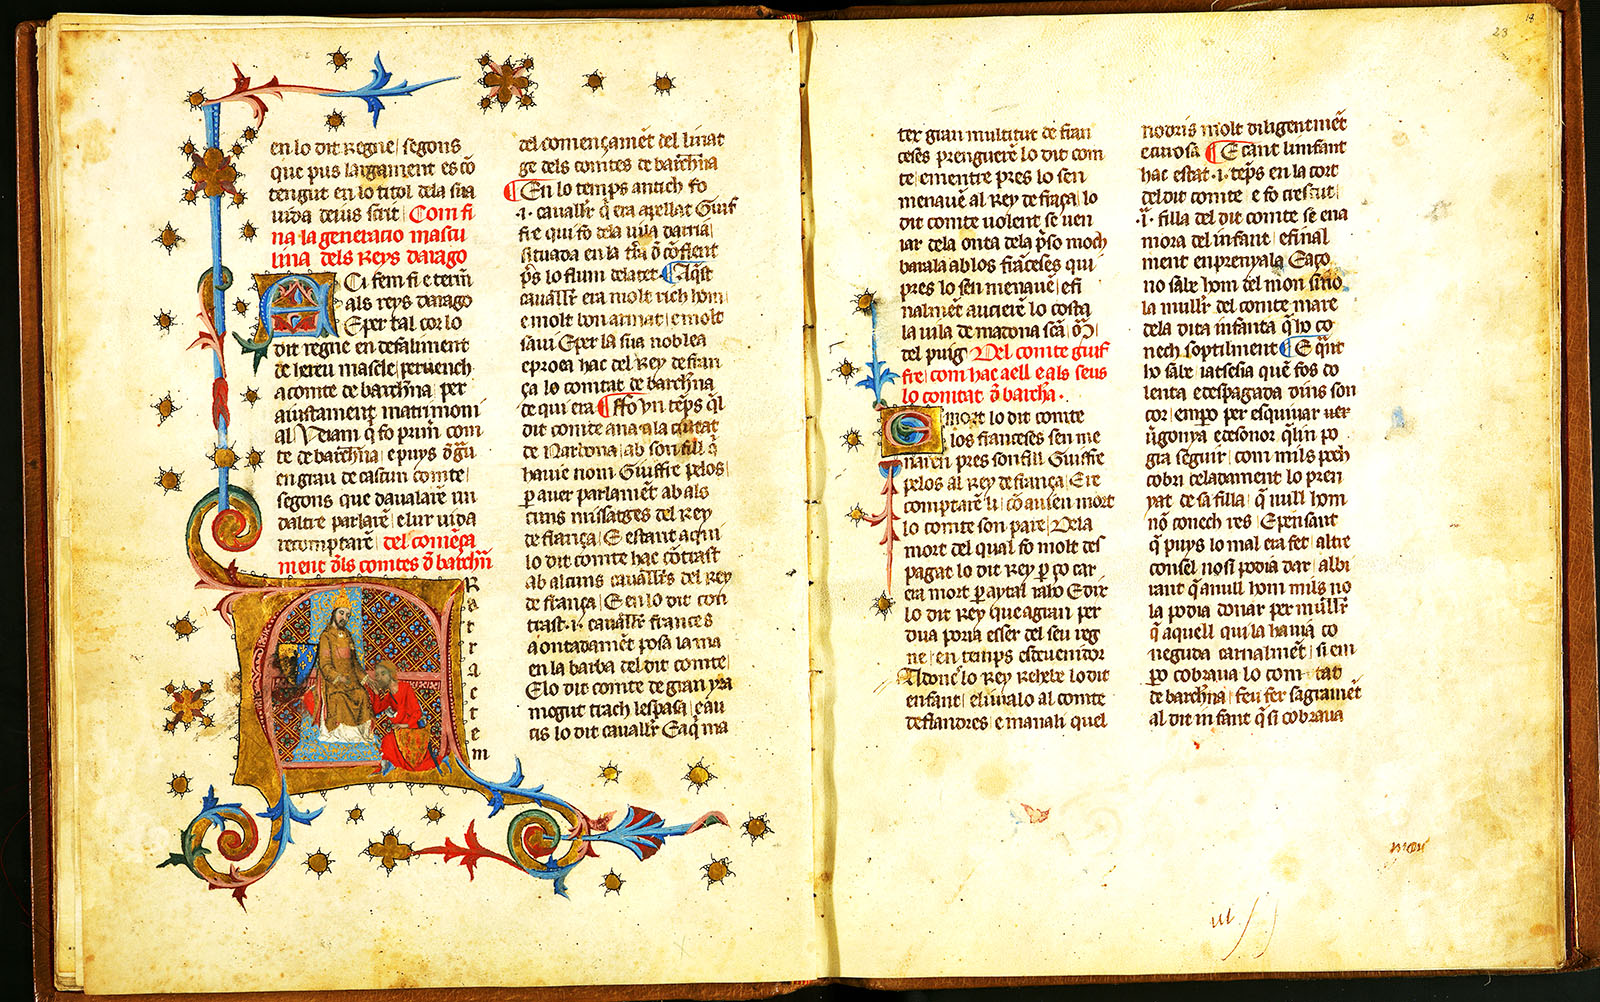 en lo dit regne segons
que pus largament es cō
tengut en lo titol dela sua
uida deius scrit Com fi
na la generatio mascu
lina dels Reys darago
Aci fem fi e term̄
als reys darago
E per tal cor lo
dit regne en defaliment
de hereu mascle peruench
a comte de barch̄na per
aiustament matrimoni
al
te de barch̄na e puys
en grau de cascun comte
segons que daualarē un
daltre parlarē e lur uida
recomptarē del comēça
ment d̄ls comtes d̄ barch̄n
R
a
t
r
a
c
t
e
m
del començamēt del linat
ge dels comtes de barch̄na
En lo temps antich fo
·i· cauall̄r q̄ era apellat Guif
fre qui fo dela uila darria
situada en la
p̄s lo flum delatet Aq̄st
cauall̄r era molt rich hom
e molt bon armat e molt
saui E per la sua noblea
e proea hac del Rey de fran
ça lo comtat de barch̄na
de qui era ffo un tēps q̄l
dit comte ana a la ciutat
de Narbona ab son fill q̄
hauie nom Guiffre pelos
p̱ auer parlamēt ab als
cuns missatges del Rey
de frança E estant aqui
lo dit comte hac cōtrast
ab alcuns cauall̄rs del Rey
de frança E en lo dit con
trast ·i· cauall̄r frances
aontadamēt posa la ma
en la barba del dit comte
E lo dit comte de gran yra
mogut trach lespasa e au
cis lo dit cauall̄r E aq̄ ma
18
23
tex gran multitut de fran
ceses prenguerē lo dit com
te e mentre pres lo sen
menauē al Rey de frāça lo
dit comte uolent se uen
iar dela onta dela p̄so moch
baralla ab los frāceses qui
pres lo sen menauē e fi
nalment auciere lo costa
la uila de madona
del puig Del comte guif
fre com hac aell e als seus
lo comtat d̄ barch̄a
E mort lo dit comte
los franceses sen me
naren pres son fill Guiffre
pelos al Rey de frança E re
comptarē li cō auien mort
lo comte son pare Dela
mort del qual fo molt des
pagat lo dit Rey p̱ ço car
era mort p̱ aytal raho E dix
lo dit Rey que a gran per
dua poria esser del seu reg
ne en temps esdeuenidor
Adonc̄s lo Rey rehebe lo dit
enfant e liuralo al comte
de flandres e manali quel
nodris molt diligentmēt
e curosa E cant linfant
hac estat ·i· tēps en la cort
del dit comte e fo crescut
·i· filla del dit comte se ena
mora del infant e final
ment enprenyala E aço
no sabe hom del mon sino
la mull̄r del comte mare
dela dita infanta q̄ ho co
nech soptilment E
ho sabe iatsesia quē fos do
lenta e despagada dins son
cor empo per esquiuar uer
ḡonya e desonor q̄lin po
gra seguir com mils poch
cobri celadament lo pren
yat de sa filla q̄ null hom
nō conech res E pensant
q̄ puys lo mal era fet altre
consel nosi podia dar albi
rant q̄ a null hom mils no
la podia donar per mull̄r
q̄ aquell qui la hauia co
neguda carnalmēt si em
p̱o cobraua lo comtat
de barch̄na feu fer sagramēt
al dit infant q̄ si cobraua